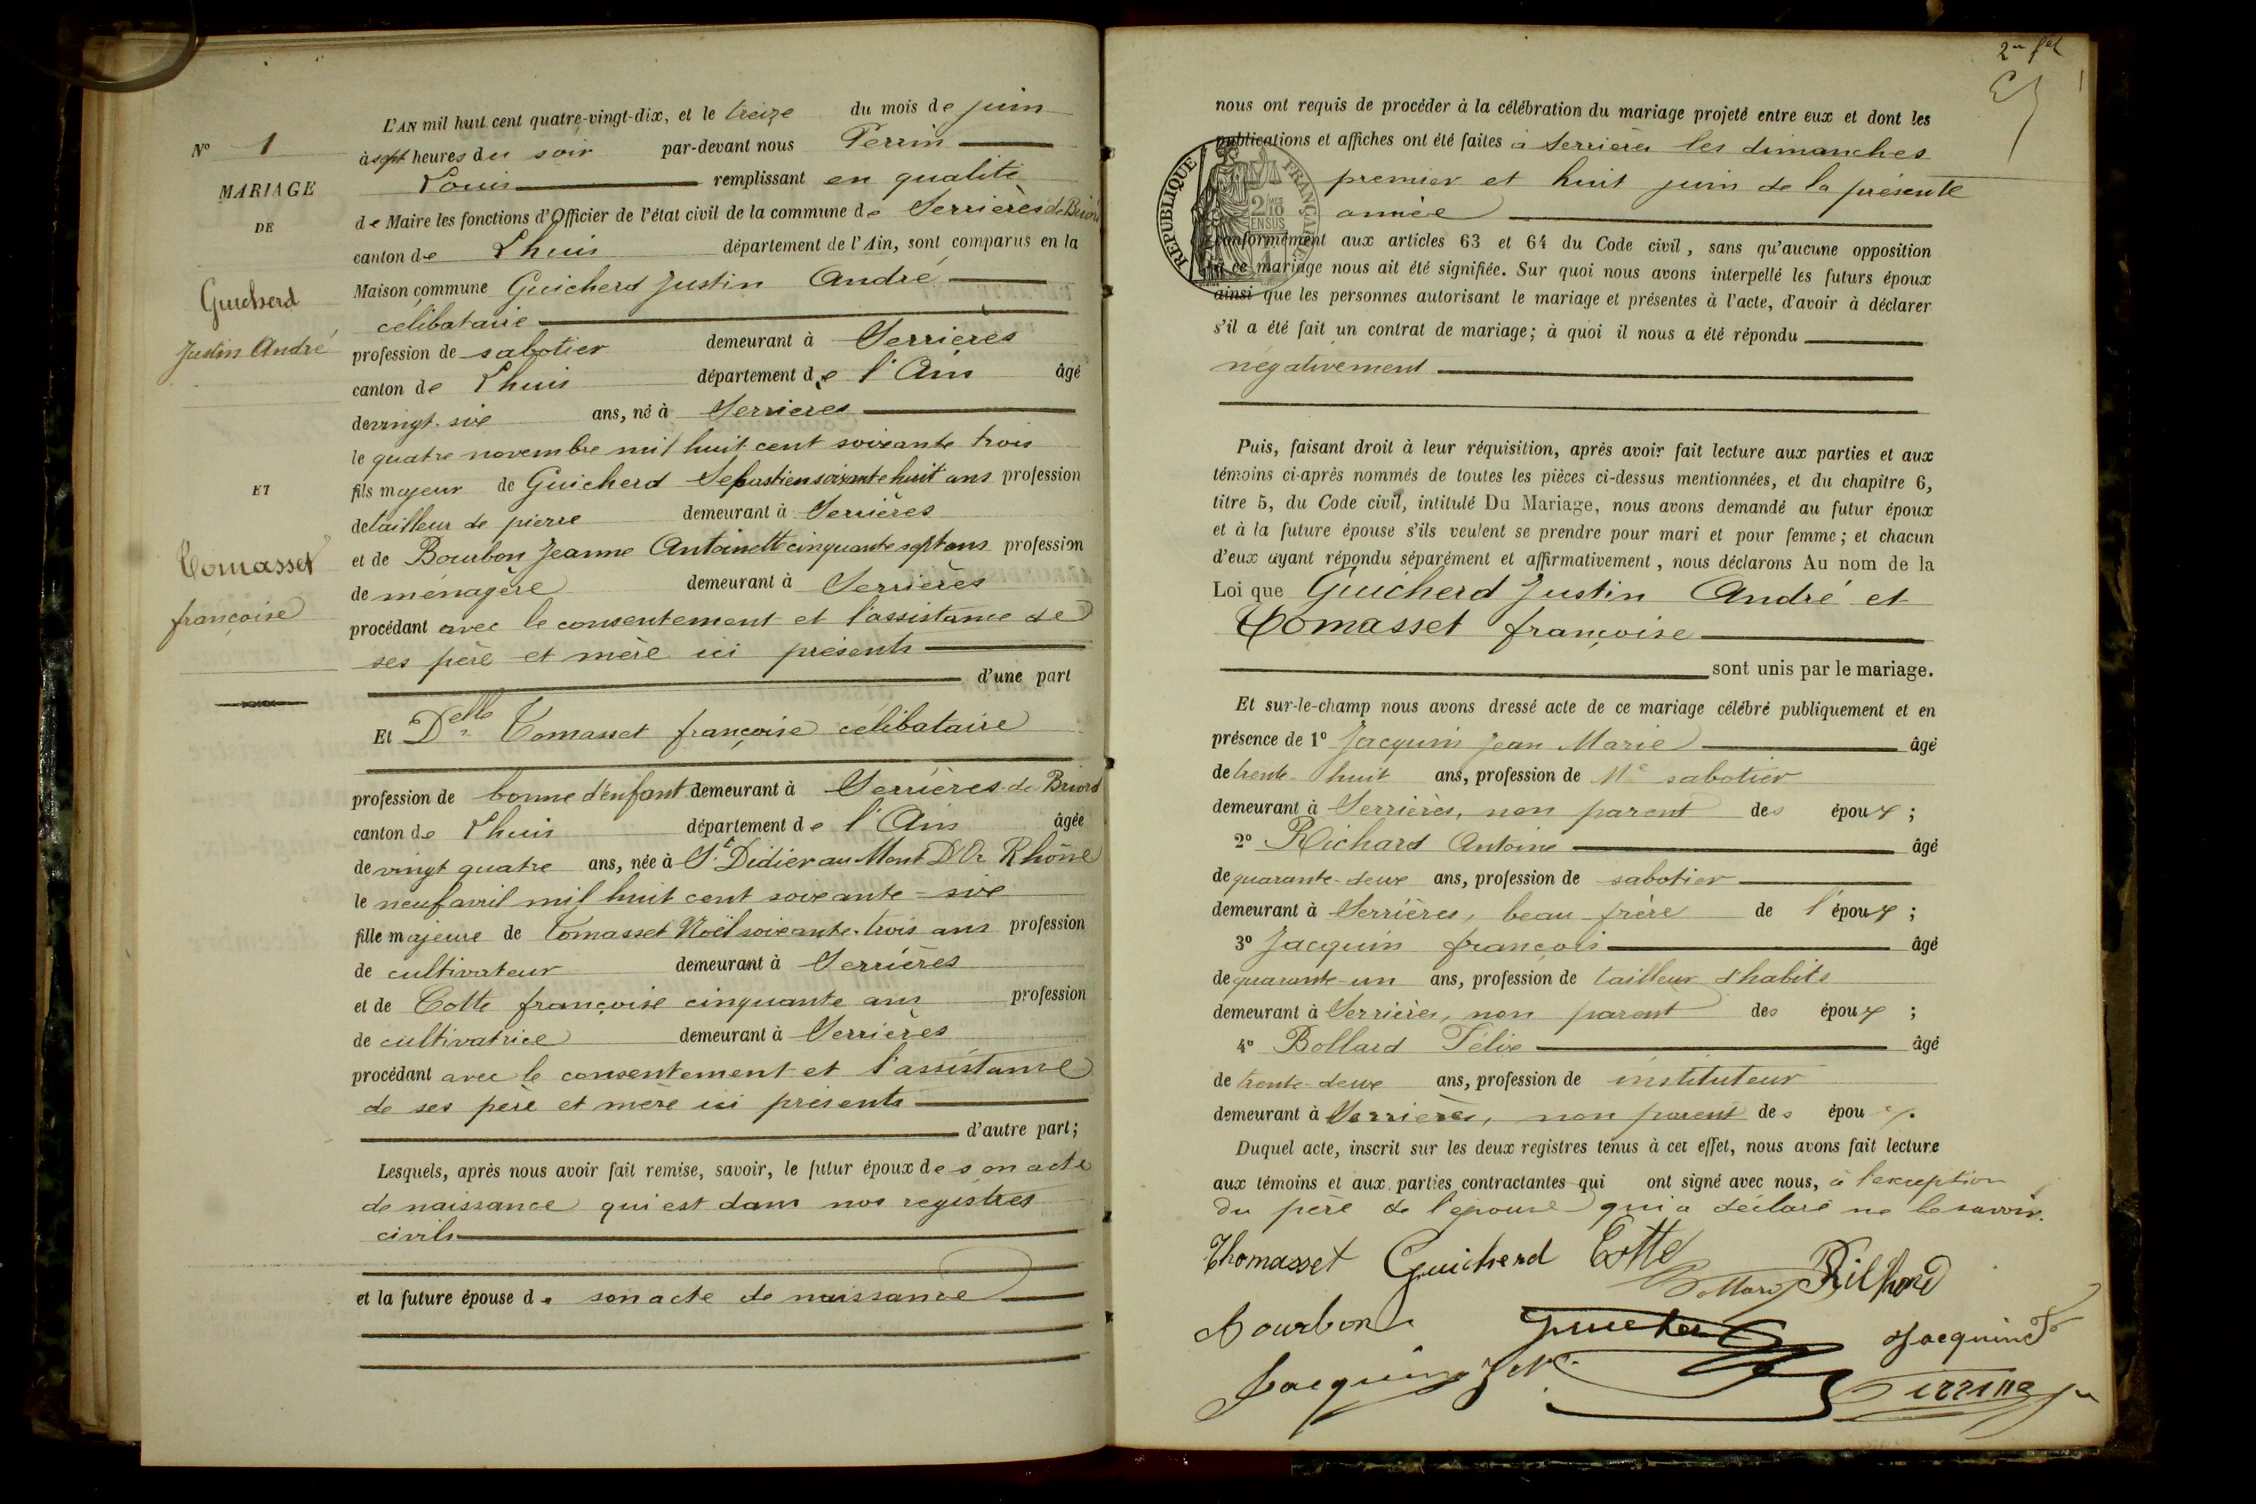 N° 1
MARIAGE
DE
Guicherd
Justin André
ET
Tomasset
françoise
L'AN mil huit cent quatre-vingt-dix, et le treize du mois de juin
à sept heures du soir par-devant nous Perrin
Louis remplissant en qualité
de Maire les fonctions d'Officier de l'état civil de la commune de Serrières de Briord
canton de Lhuis département de l'Ain, sont comparus en la
Maison commune Guicherd Justin André
célibataire
profession de sabotier demeurant à Serrières
canton de Lhuis département de l'Ain âgé
de vingt-six ans, né à Serrières
le quatre novembre mil huit cent soixante trois
fils majeur de Guicherd Sebastien soixante huit ans profession
de tailleur de pierre demeurant à Serrières
et de Bourbon Jeanne Antoinette cinquante sept ans profession
de ménagère demeurant à Serrières
procédant avec le consentement et l'assistance de
ses père et mère ici présents
d'une part
Et Delle Tomasset françoise célibataire
profession de bonne d'enfant demeurant à Serrières de Briord
canton de Lhuis département de l'Ain âgée
de vingt quatre ans, née à St Didier au Mont D'Or Rhône
le neuf avril mil huit cent soixante-six
fille majeure de Tomasset Noël soixante-trois ans profession
de cultivateur demeurant à Serrières
et de Cotte françoise cinquante ans profession
de cultivatrice demeurant à Serrières
procédant avec le consentement et l'assistance
de ses père et mère ici présents
d'autre part;
Lesquels, après nous avoir fait remise, savoir, le futur époux de son acte
de naissance qui est dans nos registres
civils
et la future épouse de son acte de naissance
nous ont requis de procéder à la célébration du mariage projeté entre eux et dont les
publications et affiches ont été faites à Serrières les dimanches
premier et huit juin de la présente
année
RÉPUBLIQUE FRANÇAISE
2/10 EN SUS
conformément aux articles 63 et 64 du Code civil, sans qu'aucune opposition
à ce mariage nous ait été signifiée. Sur quoi nous avons interpellé les futurs époux
ainsi que les personnes autorisant le mariage et présentes à l'acte, d'avoir à déclarer
s'il a été fait un contrat de mariage; à quoi il nous a été répondu
négativement
Puis, faisant droit à leur réquisition, après avoir fait lecture aux parties et aux
témoins ci-après nommés de toutes les pièces ci-dessus mentionnées, et du chapitre 6,
titre 5, du Code civil, intitulé Du Mariage, nous avons demandé au futur époux
et à la future épouse s'ils veulent se prendre pour mari et pour femme; et chacun
d'eux ayant répondu séparément et affirmativement, nous déclarons Au nom de la
Loi que Guicherd Justin André et
Tomasset françoise
sont unis par le mariage.
Et sur-le-champ nous avons dressé acte de ce mariage célébré publiquement et en
présence de 1° Jacquin Jean Marie âgé
de trente-huit ans, profession de Me sabotier
demeurant à Serrières, non parent des époux;
2° Richard Antoine âgé
de quarante-deux ans, profession de sabotier
demeurant à Serrières, beau-frère de l'époux;
3° Jacquin françois âgé
de quarante-un ans, profession de tailleur d'habits
demeurant à Serrières, non parent des époux;
4° Bollard Félix âgé
de trente-deux ans, profession de instituteur
demeurant à Serrières, non parent des époux.
Duquel acte, inscrit sur les deux registres tenus à cet effet, nous avons fait lecture
aux témoins et aux parties contractantes qui ont signé avec nous, à l'exception
du père de l'épouse qui a déclaré ne le savoir.
Thomasset Guicherd Cotte
Bollard Richard
Bourbon Guicherd Jacquin F
Jacquin J M Perrin